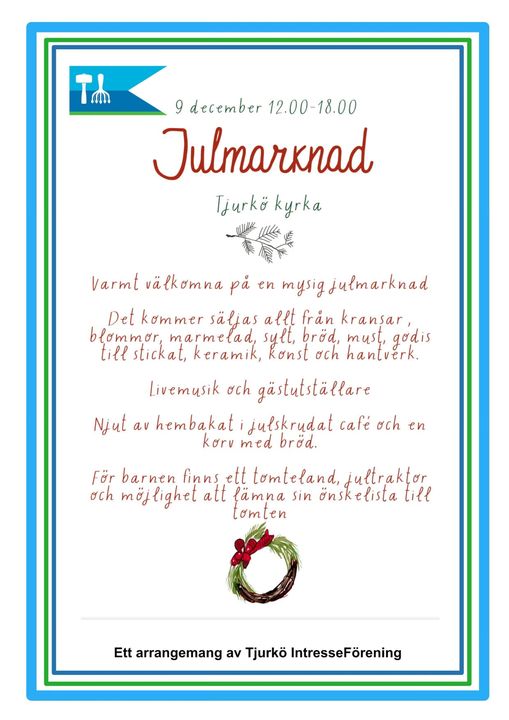 9 december 12.00-18.00
Julmarknad
Tjurkö kyrka
Varmt välkomna på en mysig julmarknad
Det kommer säljas allt från kransar ,
blommor, marmelad, sylt, bröd, must, godis
till stickat, keramik, konst och hantverk.
Livemusik och gästutställare
Njut av hembakat i julskrudat café och en
korv med bröd.
För barnen finns ett tomteland, jultraktor
och möjlighet att lämna sin önskelista till
tomten
Ett arrangemang av Tjurkö IntresseFörening